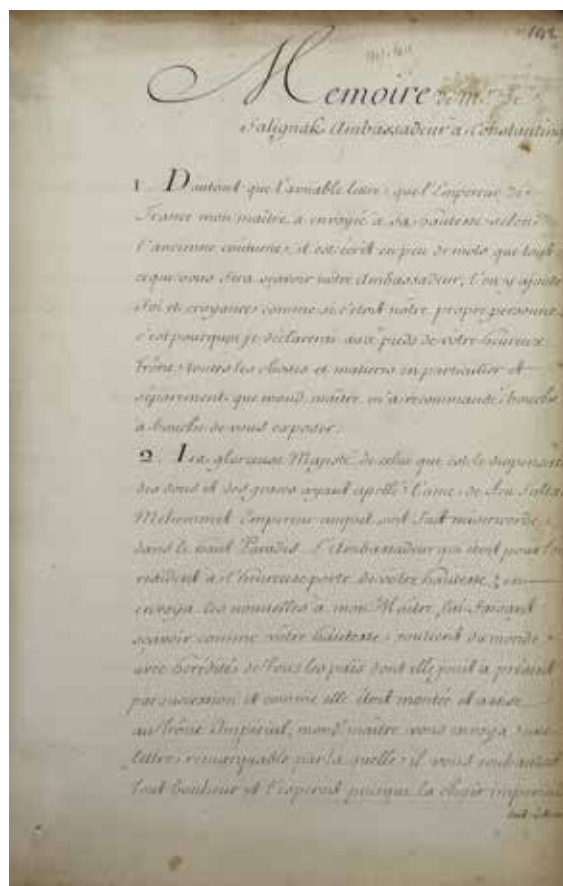 142
Memoire de Mr. de
Salignak Ambassadeur a Constantino
1. Dautant que l'amiable lettre que l'Empereur de
France mon maître a envoyé a sa hautesse selon
l'ancienne coûtume, il est écrit en peu de mots que tout
ce que vous fera sçavoir nôtre Ambassadeur, l'on y ajoute
foi et croyance comme si c'étoit nôtre propre personne
c'est pourquoi je déclarerai aux pieds de vôtre heureux
trône toutes les choses et matieres en particulier et
séparément que mond. maître m'a recommandé bouche
à bouche de vous exposer.
2. La glorieuse Majesté de celui qui est le dispensat
des dons et des graces ayant apellé l'ame de feu Sulta
Mehemmet Empereur auquel soit fait misericorde
dans le haut Paradis. L'Ambassadeur qui étoit pour lors
résident à l'heureuse porte de votre hautesse en
envoya les nouvelles a mon Maître, lui faisant
sçavoir comme vôtre hautesse soutient du monde
avec hérédité de tous les païs dont elle jouit a présent
par succession et comme elle étoit montée et assise
au trône Imperial, mond. maître vous envoya une
lettre remarquable par laquelle il vous souhaitoit
tout bonheur et l'esperoit puisque la chose imperial